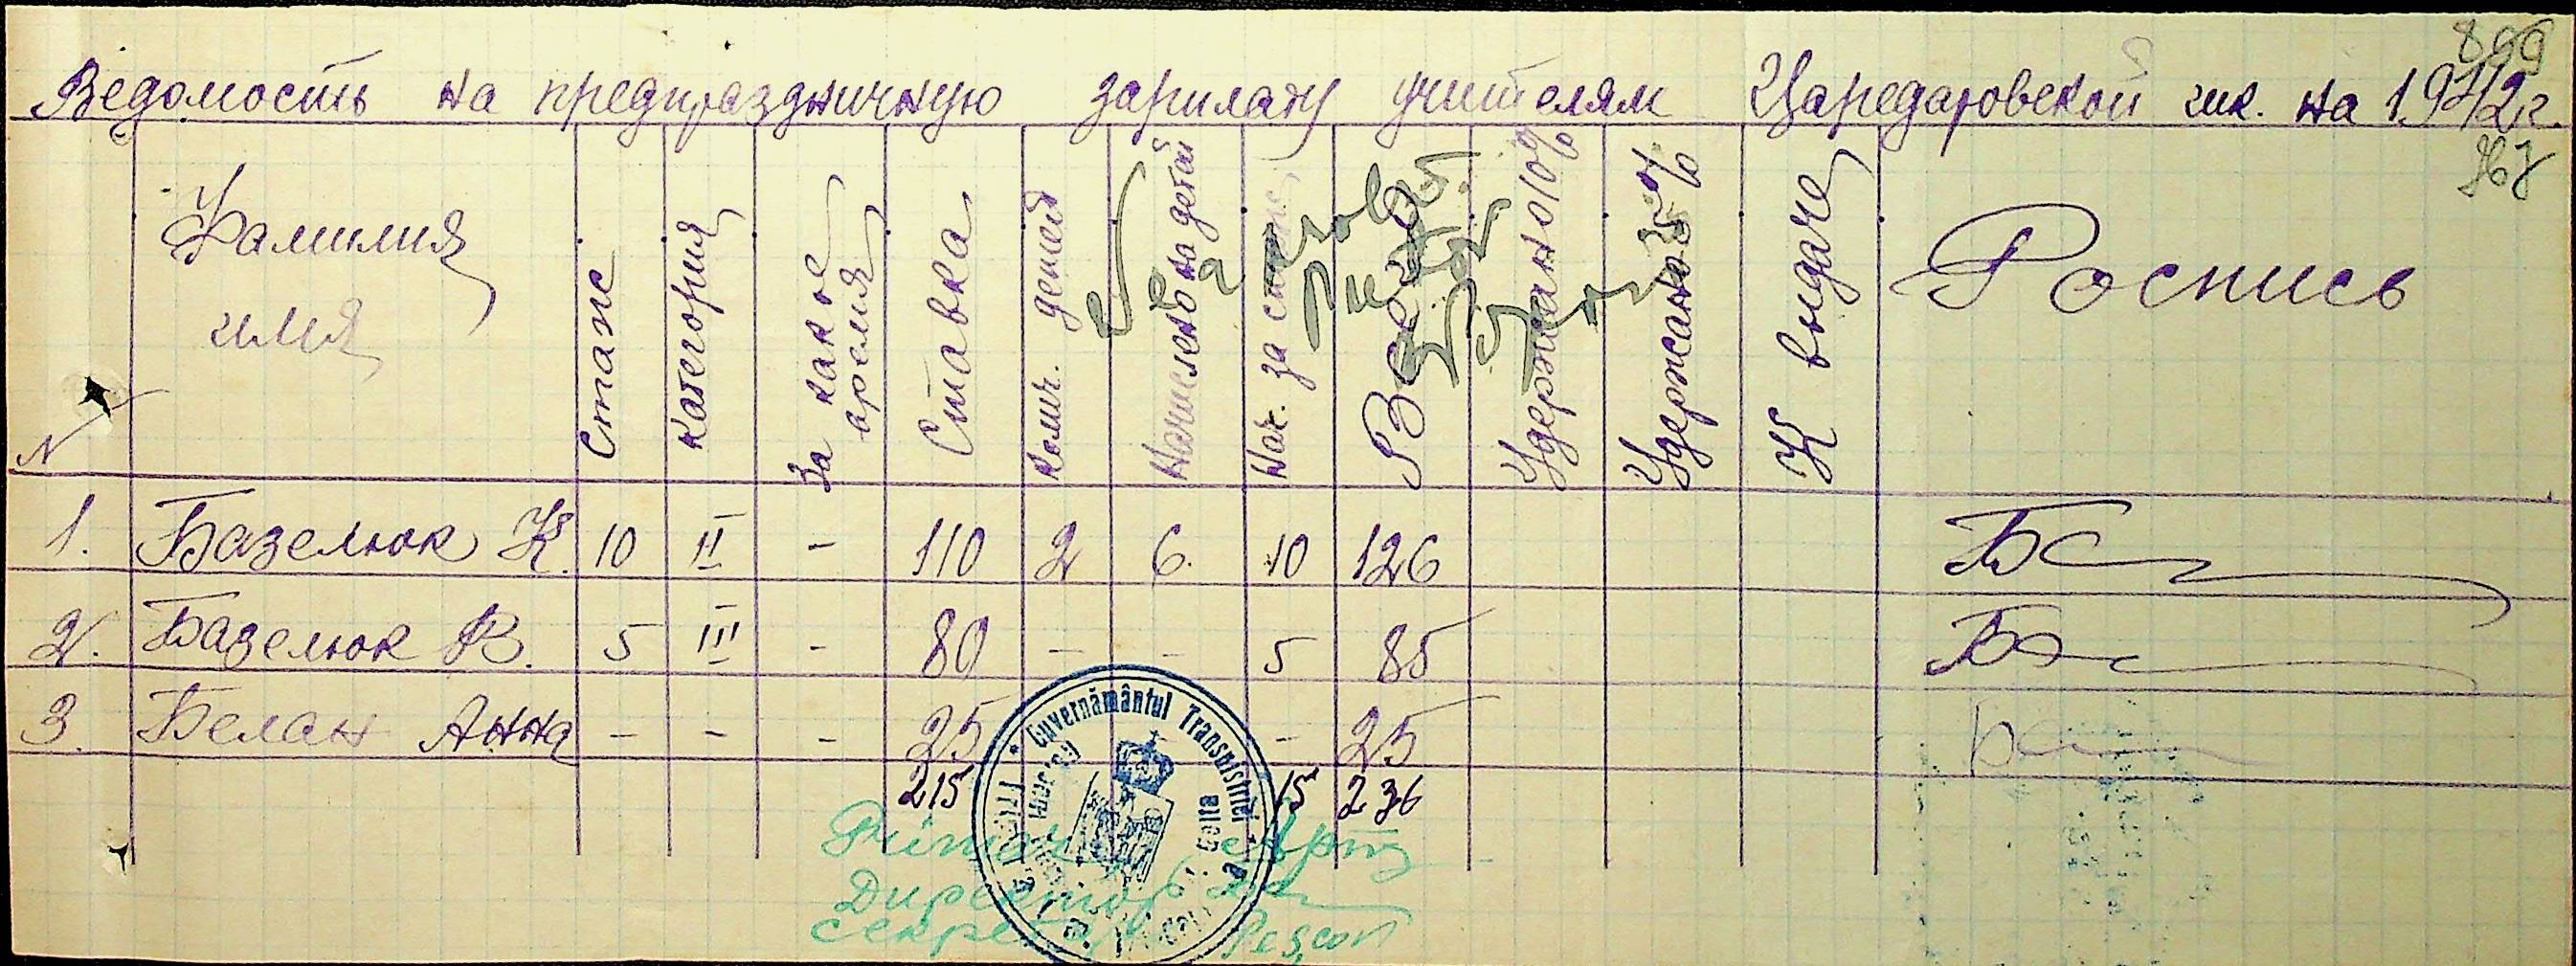 899
Ведомость на предпраздничную зарплату учителям Царедаровской шк. на 1942 г.
N Фамилия имя Стаж Категория За какое время Ставка Колич. детей Начислено на детей Нач. за стаж Всего Удержано 10% Удержано % К выдаче Роспись
1. Базелюк К. 10 II - 110 2 6. 10 126
2. Базелюк В. 5 III - 80 - - 5 85
3. Белан Анна - - - 25 - 25
215 15 236
Guvernământul Transnistriei
Primar
Директор
Секретар